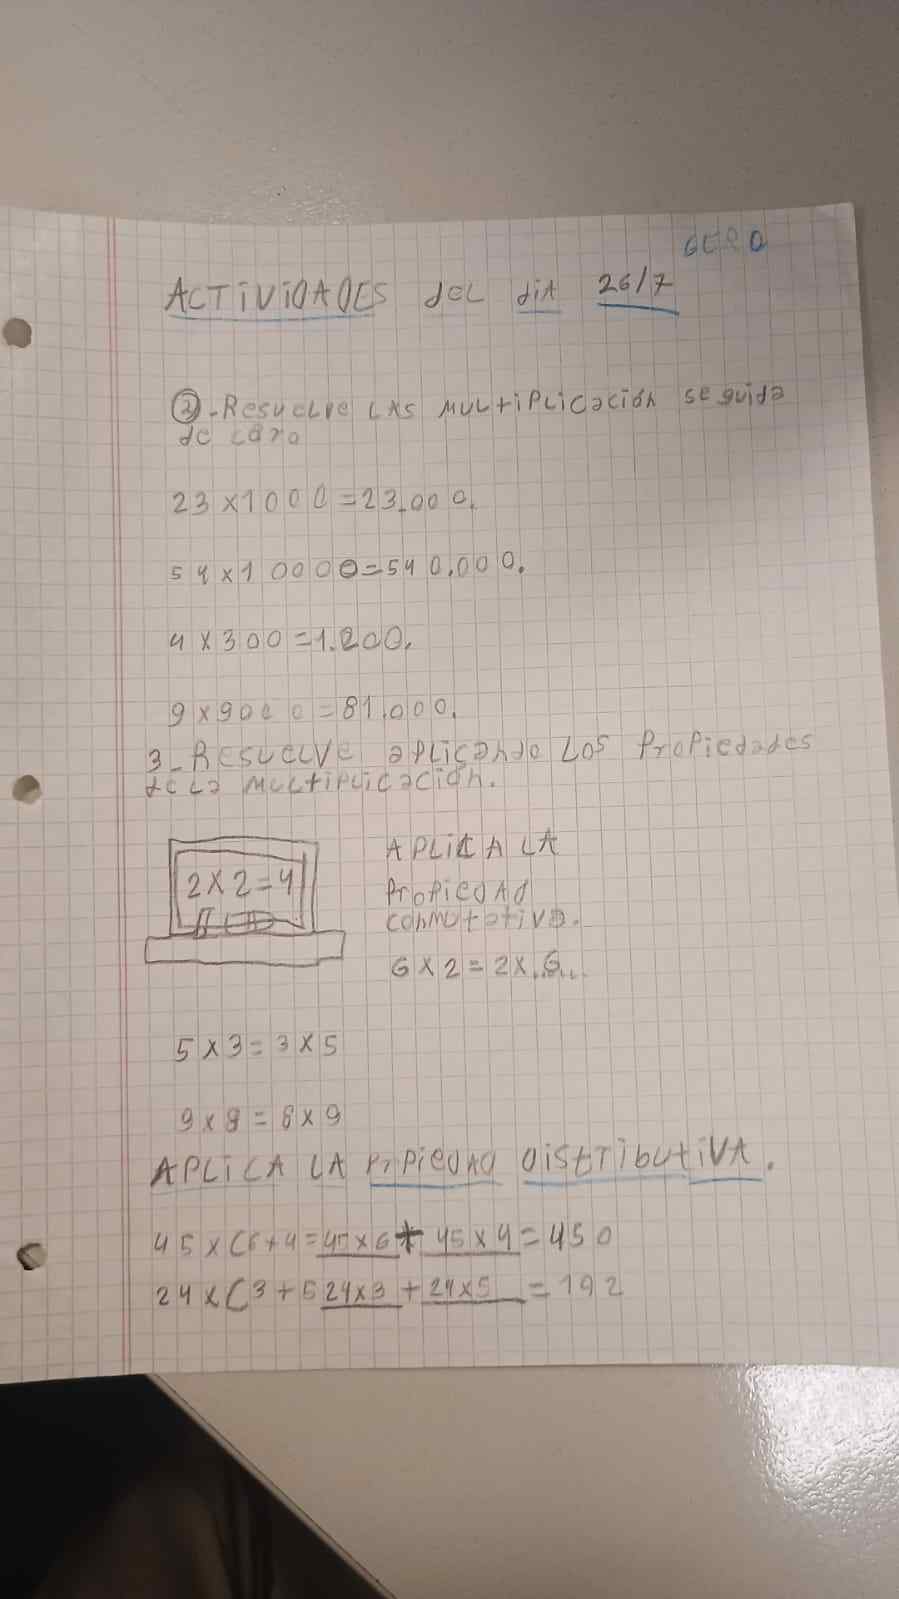 GERO
ACTIVIDADES del diA 26/7
2-Resuelve LAS MULtiPLicación seguida
de cero
23x1000=23.000.
54x10000=540.000.
4x300=1.200.
9x9000=81.000.
3-Resuelve aplicando Los Propiedades
de la multiplicación.
2x2=4
APLICA LA
Propiedad
conmutativa.
6x2=2x.6...
5x3=3x5
9x8=8x9
APLICA LA PrPiedad distributiva.
45x(6+4=45x6+45x4=450
24x(3+5 24x3+24x5=192